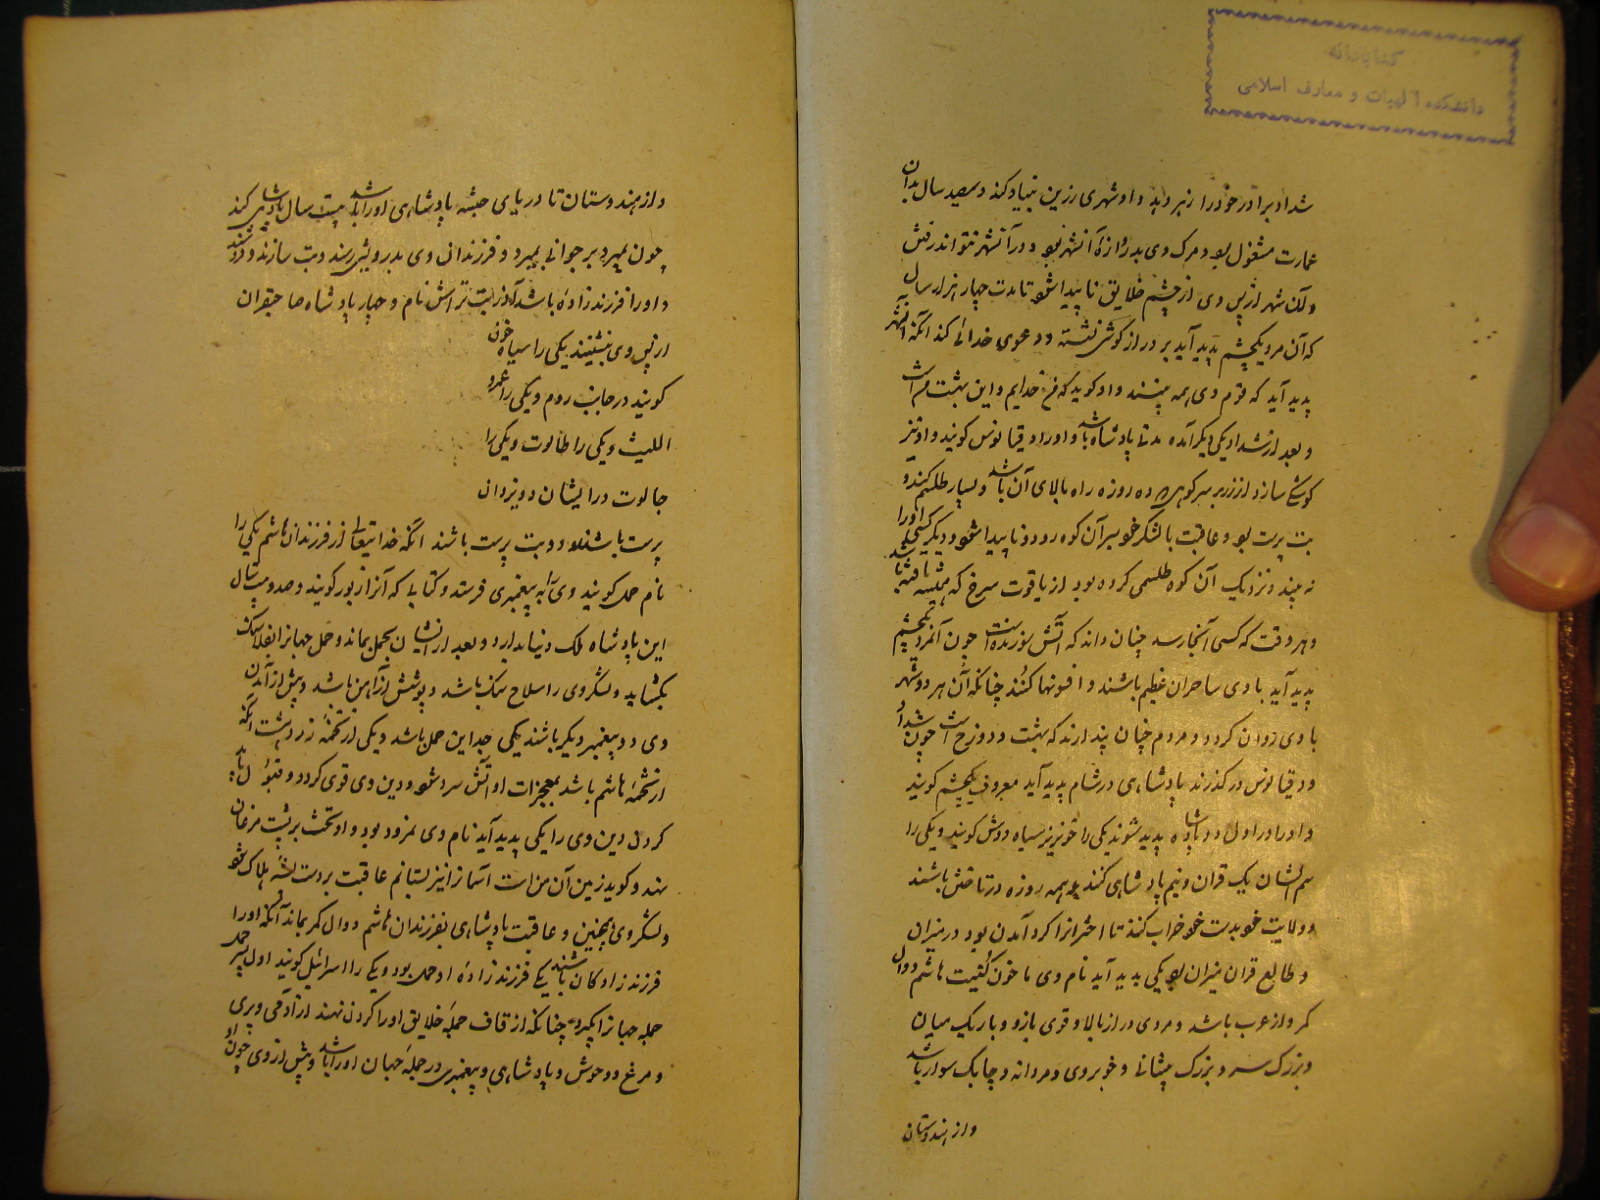 کتابخانه
دانشکده الهیات و معارف اسلامی
شداد برادر خود را زهر دهد و او شهری زرین بنیاد کند و سیصد سال بدان
عمارت مشغول بود و مرک وی بدروازهٔ آنشهر بود و در آنشهر نتواند رفتن
و آن شهر از پس وی از چشم خلایق ناپیدا شود تا مدت چهار هزار سال
که آن مرد یکچشم پدید آید بر درازکوشی نشسته و دعوی خدائی کند آنکه آن شهر
پدید آید که قوم وی همه بینند و او کوید که من خدایم و این بهشت من است
و بعد از شداد یکی دیکر آمده مدتی پادشاه باشد و او را دقیانوس کویند و او نیز
کوشکی سازد از زر بر سر کوهی ده روزه راه بالای آن باشد و بسیار طلسم کند و
بت پرست بود و عاقبت با لشکر خود بر آن کوه رود و ناپیدا شود و دیکر کسی او را
نه بیند و نزدیک آن کوه طلسمی کرده بود از یاقوت سرخ که همیشه تافته باشد
و هر وقت که کسی آنجا رسد چنان داند که آتش سوزنده است چون آنمرد یکچشم
پدید آید با وی ساحران عظیم باشند و افسونها کنند چنانکه آن هر دو شهر
با وی روان کردد و مردم چنان پندارند که بهشت و دوزخ است چون شداد
و دقیانوس در کذرند پادشاهی در شام پدید آید معروف بیکچشم کویند
و در اول دو پادشاه پدید شوند یکی را خونریز سیاه دوش کویند و یکی را
سم ایشان یک قران و نیم پادشاهی کنند و همه روزه در تاختن باشند
و ولایت خود بدست خود خراب کنند تا اختران را کرد آمدن بود در میزان
و طالع قران میزان بود یکی پدید آید نام وی ما خون کنیت هاشم دوال
کمر و از عرب باشد و مردی دراز بالا و قوی بازو و باریک میان
و بزرک سر و بزرک پیشانی و خوبروی و مردانه و چابک سوار باشد
و از هندوستان
و از هندوستان تا دریای حبشه پادشاهی او را باشد بیست سال پادشاهی کند
چون بمیرد بر جوانی بمیرد و فرزندان وی بدرویشی رسند و بت سازند و فروشند
و او را فرزند زادهٔ باشد آذر بت تراش نام و چهار پادشاه صاحبقران
از پس وی بنشینند یکی را سیاه خون
کویند در جانب روم و یکی را عمرو
اللیث و یکی را طالوت و یکی را
جالوت در ایشان دو یزدان
پرست باشند و دو بت پرست باشند آنکه خدایتعالی از فرزندان هاشم یکی را
نام حمل کویند وی را به پیغمبری فرستد و کتابی که آنرا زبور کویند و صد و بیست سال
این پادشاه ملک دنیا بدارد و بعد از ایشان بحمل بماند و حمل جهان را
بکشاید و لشکر وی را سلاح سنک باشد و پوشش از آهن باشد و پیش از آمدن
وی دو پیغمبر دیکر باشند یکی جد این حمل باشد و یکی از تخمهٔ زردشت آنکه
از تخمهٔ هاشم باشد بمعجزات او آتش سرد شود و دین وی قوی کردد و قبول ناید
کردن دین وی را یکی پدید آید نام وی نمرود بود و او تخت بر پشت مرغان
نهد و کوید زمین آن من است آسمان را نیز بستانم عاقبت بر دست پشه هلاک شود
و لشکر وی همچنین و عاقبت پادشاهی بفرزندان هاشم دوال کمر بماند آنکه او را
فرزند زادکان باشند یکی فرزند زادهٔ او حمل بود و یکی را اسرائیل کویند اول پسر حمل
جمله جهان را بکیرد چنانکه از قاف جملهٔ خلایق او را کردن نهند از آدمی و پری
و مرغ و وحوش و پادشاهی و پیغمبری در جملهٔ جهان او را باشد و پیش از وی چون او